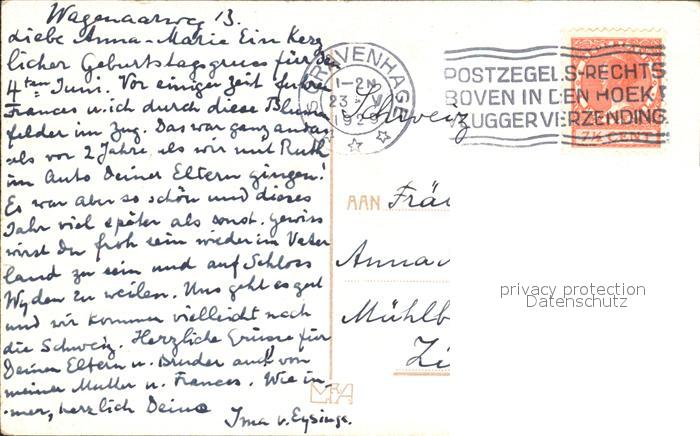 Wagenaarweg 13.
Liebe Anna-Marie Ein herz
licher Geburtstagsgruss für den
4ten Juni. Vor einiger Zeit fuhren
Frances u. ich durch diese Blumen
felder im Zug. Das war ganz anders
als vor 2 Jahre als wir mit Ruth
im Auto Deiner Eltern gingen!
Es war aber so schön und dieses
Jahr viel später als sonst. Gewiss
wirst Du froh sein wieder im Vater
land zu sein und auf Schloss
Wyden zu weilen. Uns geht es gut
und wir kommen vielleicht nach
die Schweiz. Herzliche Grüsse für
Deinen Eltern u. Bruder auch von
meiner Mutter u. Frances. Wie im-
mer, herzlich Deine
Ima v. Eysinga.
'S GRAVENHAGE
1-2 N
23 V
192
POSTZEGELS-RECHTS
BOVEN IN DEN HOEK!
VLUGGER VERZENDING
7½ CENT
Schweiz
AAN Fräu
Anna
Mühlb
Zü
privacy protection
Datenschutz